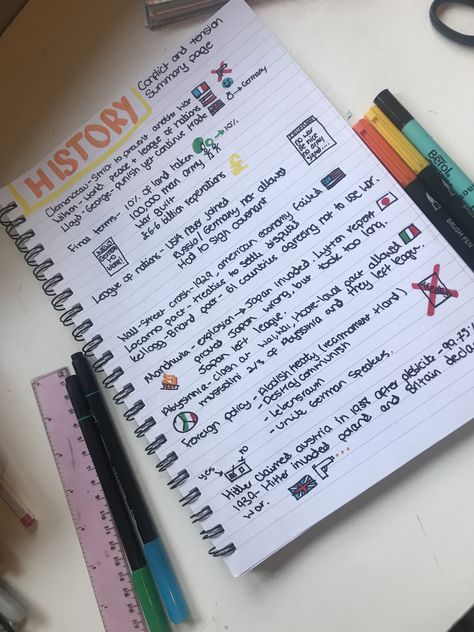 HISTORY
Conflict and tension
Summary page
Clemenceau - Strict to prevent another war
Wilson - World peace + league of nations
Lloyd-George - punish yet continue trade → Germany
Final terms - 10% of land taken → 10%
100,000 men army
War guilt
£6.6 billion reperations £
League of nations - USA never joined
Russia/Germany not allowed
Had to sign covenant
no war
be nice
no army
Wall-Street crash - 1929, american economy failed
Locarno pact - treatise to settle disputes
Kellogg Briand pact - 61 countries agreeing not to use war.
Manchuria - explosion → Japan invaded. Lytton report
proved Japan wrong, but took too long.
Japan left league.
Abyssinia - clash at wal, Hoare-laval pact allowed
mussolini 2/3 of Abyssinia and they left league.
Foreign policy - Abolish treaty (rearmament +land)
- Destroy communism
- Lebensraum
- Unite German speakers.
yes no
Hitler claimed austria in 1938 after plebicite 99.75%
1939 - Hitler invaded poland and Britain
war.
Berol
BRUSH PEN